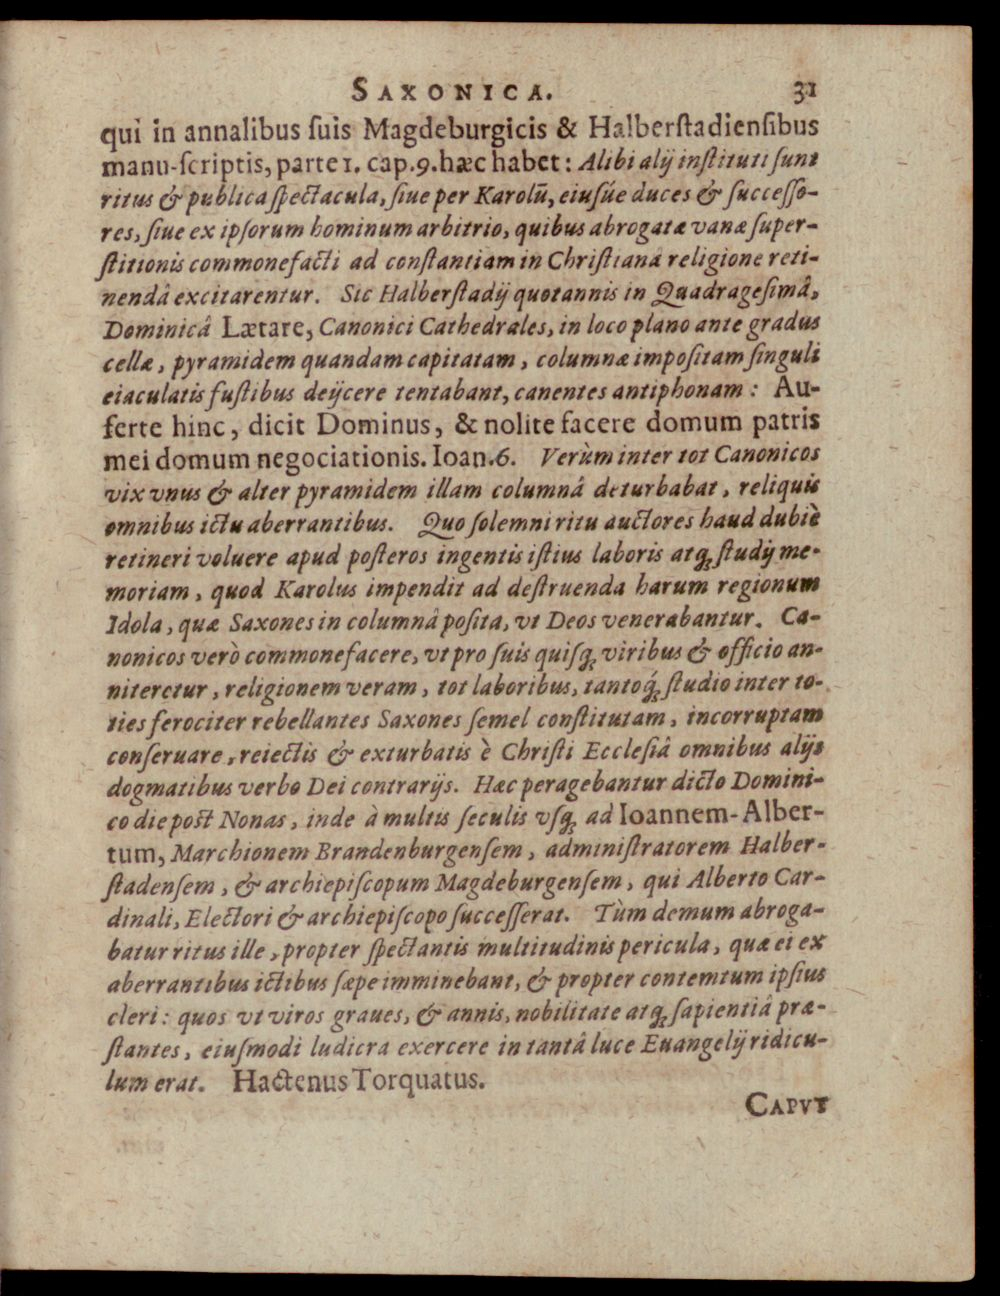 SAXONICA. 31
qui in annalibus ſuis Magdeburgicis & Halberſtadienſibus
manu-ſcriptis, parte 1. cap. 9. hæc habet: Alibi alij inſtituti ſunt
ritus & publica ſpectacula, ſiue per Karolū, eiuſúe duces & ſucceſſo-
res, ſiue ex ipſorum hominum arbitrio, quibus abrogatæ vanæ ſuper-
ſtitionis commonefacti ad conſtantiam in Chriſtiana religione reti-
nendâ excitarentur. Sic Halberſtadij quotannis in Quadrageſimâ,
Dominicâ Lætare, Canonici Cathedrales, in loco plano ante gradus
cellæ, pyramidem quandam capitatam, columnæ impoſitam ſinguli
eiaculatis fuſtibus deijcere tentabant, canentes antiphonam: Au-
ferte hinc, dicit Dominus, & nolite facere domum patris
mei domum negociationis. Ioan. 6. Verùm inter tot Canonicos
vix vnus & alter pyramidem illam columnâ deturbabat, reliquis
omnibus ictu aberrantibus. Quo ſolemni ritu auctores haud dubiè
retineri voluere apud poſteros ingentis iſtius laboris atq; ſtudij me-
moriam, quod Karolus impendit ad deſtruenda harum regionum
Idola, quæ Saxones in columnâ poſita, vt Deos venerabantur. Ca-
nonicos verò commonefacere, vt pro ſuis quiſq; viribus & officio an-
niteretur, religionem veram, tot laboribus, tantoq́; ſtudio inter to-
ties ferociter rebellantes Saxones ſemel conſtitutam, incorruptam
conſeruare, reiectis & exturbatis è Chriſti Eccleſiâ omnibus alijs
dogmatibus verbo Dei contrarijs. Hæc peragebantur dicto Domini-
co die poſt Nonas, inde à multis ſeculis vſq; ad Ioannem-Alber-
tum, Marchionem Brandenburgenſem, adminiſtratorem Halber-
ſtadenſem, & archiepiſcopum Magdeburgenſem, qui Alberto Car-
dinali, Electori & archiepiſcopo ſucceſſerat. Tùm demum abroga-
batur ritus ille, propter ſpectantis multitudinis pericula, quæ ei ex
aberrantibus ictibus ſæpe imminebant, & propter contemtum ipſius
cleri: quos vt viros graues, & annis, nobilitate atq; ſapientiâ præ-
ſtantes, eiuſmodi ludicra exercere in tantâ luce Euangelij ridicu-
lum erat. Hactenus Torquatus.
CAPVT